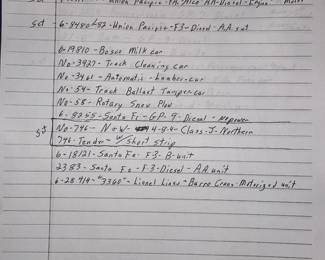 Union Pacific - Alco AA-Diesel-Engine
Set 6-8480/82-Union Pacific-F3-Diesel-A.A set
6-19810-Bosco Milk car
No-3927-Track Cleaning car
No-3461-Automatic-Lumber-car
No-54-Track Ballast Tamper-car
No-58-Rotary Snow Plow
Santa Fe-GP-9-Diesel-
No-746-N&W- 4-8-4-Class-J-Northern
746-Tender-W/Short Strip
6-18121-Santa Fe-F3-B-unit
2383-Santa Fe-F3-Diesel-A.A unit
6-28414-"3360"-Lionel Lines-Burro Crane-Motorized unit